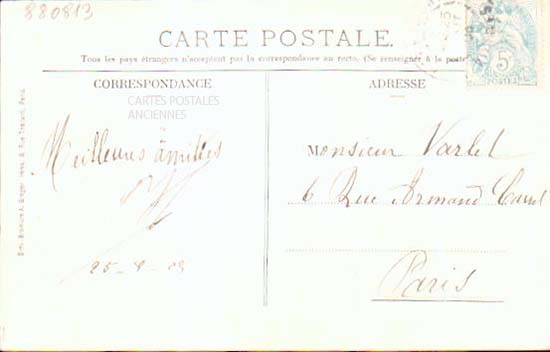 880813
CARTE POSTALE.
Tous les pays étrangers n'acceptent pas la correspondance au recto. (Se renseigner à la poste
CORRESPONDANCE
CARTES POSTALES
ANCIENNES
Meilleures amitiés
ADRESSE
Monsieur Varlet
6 Rue Armand Carrel
Paris
5
POSTES